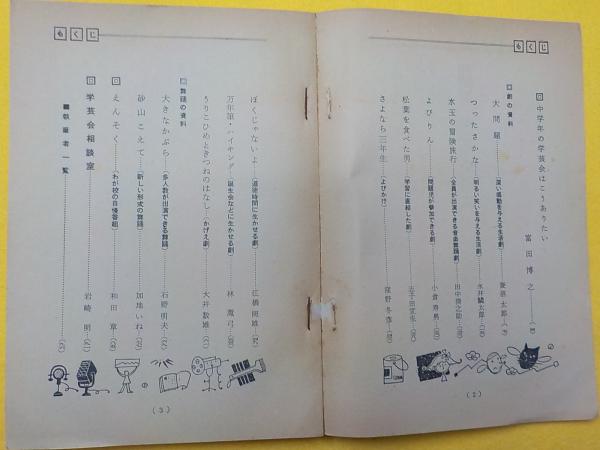 もくじ
□中学年の学芸会はこうありたい 富田博之
□劇の資料
大問題 (深い感動を与える生活劇)
つったさかな (明るい笑いを与える生活劇) 永井鱗太郎
水玉の冒険旅行 (全員が出演できる音楽舞踊劇) 田中
よびりん (問題児が参加できる劇) 小倉
松葉を食べた男 (学習に直結した劇) 志子田宣生
さよなら三年生 (よびかけ)
(2)
もくじ
ぼくじゃないよ (道徳時間に生かせる劇)
万年筆・ハイキング (誕生会などに生かせる劇) 林
うりこひめときつねのはなし (かげえ劇) 大井数雄
□舞踊の資料
大きなかぶら (多人数が出演できる舞踊) 石野明夫
砂山こえて (新しい形式の舞踊) 加地いね
□えんそく (わが校の自慢番組) 和田章
□学芸会相談室 岩崎明
■執筆者一覧
(3)